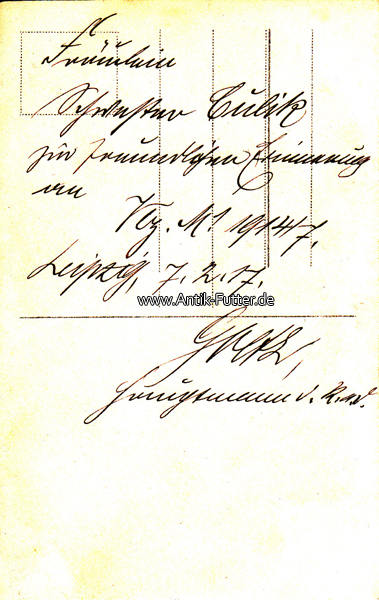 Fräulein
Schwester Culik
zur freundlichen Erinnerung
an
Leipzig, 7. 2. 17.
www.Antik-Futter.de
Hauptmann d. R. a. D.